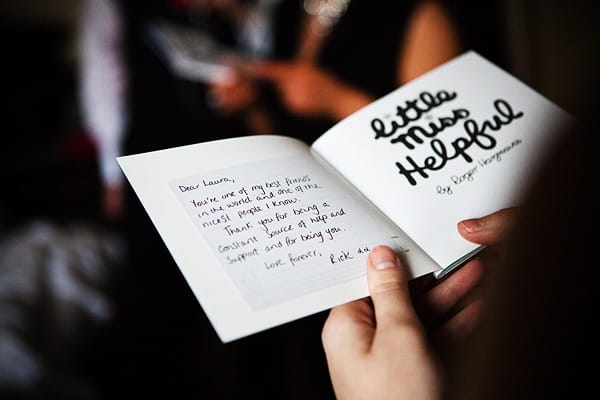 Dear Laura,
You're one of my best friends
in the world and one of the
nicest people I know.
Thank you for being a
constant source of help and
support and for being you.
Love forever,
Rick
little
Miss
Helpful
by Roger Hargreaves